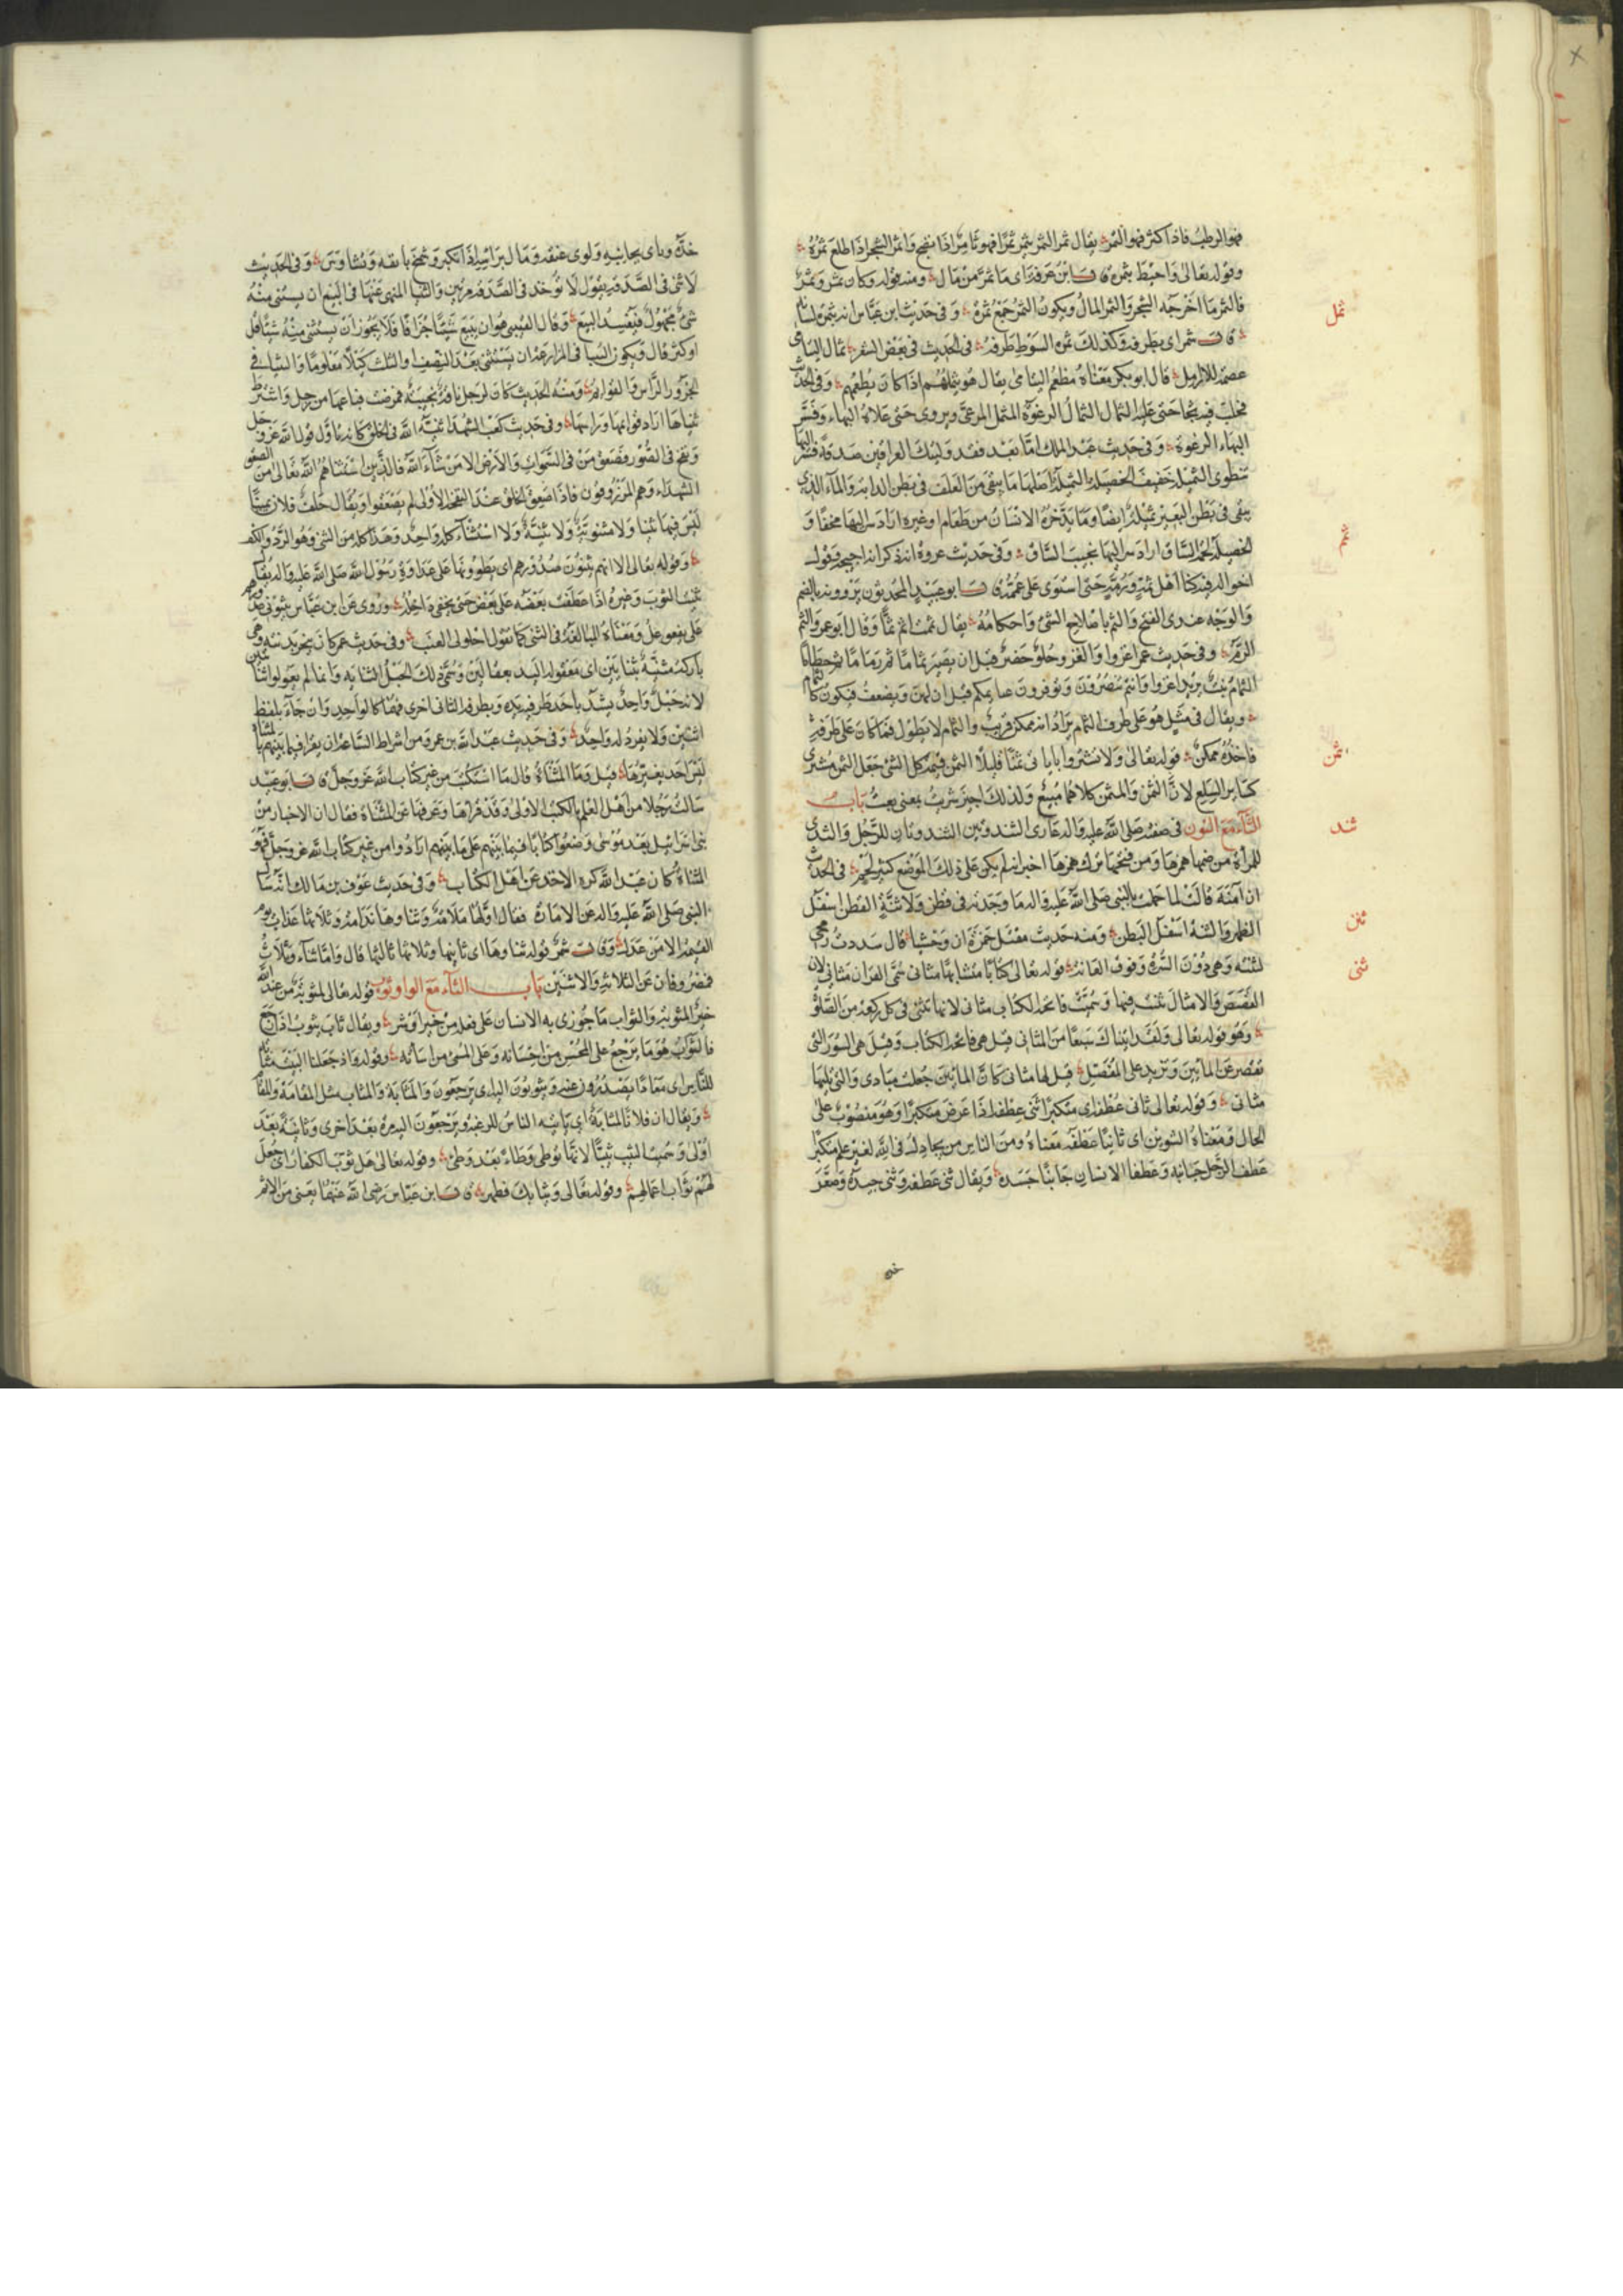 فهو الرطب فاذا كثر فهو الثمر يقال ثمر الثمر يثمر ثمرا فهو ثامر اذا نضج واثمر الشجر اذا طلع ثمره
وقوله تعالى واحيط بثمره قال ابن عرفة اى ما ثمر من مال ومنه قوله وكان ثمر وثمر
فالثمر ما اخرجه الشجر والثمر المال ويكون الثمر جمع ثمرة وفى حديث ابن عباس انه بثمرة لسانه
ثمل
قال شمر اى بطرفه وكذلك ثمرة السوط طرفه فى الحديث فى بعض الشعر ثمال اليتامى
عصمة للارامل قال ابو بكر معناه مطعم اليتامى يقال هو يثملهم اذا كان يطعمهم وفى الحديث
فحلب فيه ثجا حتى علاه الثمال الثمال الرغوة المثمل المرعى ويروى حتى علاه البهاء وفسر
البهاء الرغوة وفى حديث عبد الملك اما بعد فقد وليتك العراقين صدمة فسر اليها
منطوى الثميلة خفيف الخصيلة الثميلة اصلها ما يبقى من العلف فى بطن الدابة والماء الذى
يبقى فى بطن البعير ثميلة ايضا وما يدخره الانسان من طعام او غيره اراد سر اليها مخفا و
ثم
الخصيلة لحمة الساق اراد سر اليها نجيب الساق وفى حديث عروة انه ذكر احيحة وقول
اخواله فيه كنا اهل ثمه ورمه حتى استوى على عممه قال ابو عبيد المحدثون يروونه بالضم
والوجه عندى الفتح والثم باصلاح الشئ واحكامه يقال ثممت اثم ثما وقال ابو عمرو الثم
الرم وفى حديث عمر اغزوا والغزو حلو خضر قبل ان يصير ثماما ثم رماما ثم حطاما
الثمام نبت يريد اغزوا وانتم تنصرون وتوفرون غنايمكم قبل ان يهن ويضعف فيكون كالثمام
ويقال فى مثل هو على طرف الثمام يراد انه ممكن قريب والثمام لا يطول فما كان على طرفه
ثمن
فاخذه ممكن قوله تعالى ولا تشتروا باياتى ثمنا قليلا الثمن قيمة كل الشئ جعل الثمن مشترى
كسائر السلع لان الثمن والمثمن كلاهما مبيع ولذلك اجيز شريت بمعنى بعت باب
ثند
الثاء مع النون فى صفته صلى الله عليه واله عارى الثندوتين الثندوتان للرجل والثدى
للمرأة من ضمها همزها ومن فتحها ترك همزها اخبر انه لم يكن على ذلك الموضع كثير لحم فى الحديث
ثنن
ان آمنة قالت لما حملت بالنبى صلى الله عليه واله ما وجدته فى قطن ولا ثنة القطن اسفل
الظهر والثنة اسفل البطن ومنه حديث مقتل حمزة ان وحشيا قال سددت رمحى
ثنى
لثنته وهى دون السرة وفوق العانة قوله تعالى كتابا متشابها مثانى سمى القران مثانى لان
القصص والامثال ثنيت فيها وسميت فاتحة الكتاب مثانى لانها تثنى فى كل ركعة من الصلوة
وهو قوله تعالى ولقد اتيناك سبعا من المثانى قيل هى فاتحة الكتاب وقيل هى السور التى
تقصر عن المائين وتزيد على المفصل قيل لها مثانى كان المائين جعلت مبادى والتى تليها
مثانى وقوله تعالى ثانى عطفه اى متكبرا ثنى عطفه اذا عرض متكبرا وهو منصوب على
الحال ومعناه التنوين اى ثانيا عطفه معناه ومن الناس من يجادل فى الله لغير علم متكبرا
عطف الرجل جانبه وعطفا الانسان جانبا جسده ويقال ثنى عطفه وثنى جيده وصعر
خده
خده وناى بجانبه ولوى عنقه ومال براسه اذا تكبر وشمخ بانفه وتشاوس وفى الحديث
لا ثنى فى الصدقة يقول لا تؤخذ فى الصدقة مرتين والثنيا المنهى عنها فى البيع ان يستثنى منه
شئ مجهول فيفسد البيع وقال القتيبى هو ان يبيع شيئا جزافا فلا يجوز ان يستثنى منه شيئا قل
او كثر قال ويكون الثنيا فى المزارعة ان يستثنى بعد النصف او الثلث كيلا معلوما والثنيا فى
الجزور الراس والقوائم ومنه الحديث كان لرجل ناقة نجيبة فمرضت فباعها من رجل واشترط
ثنياها اراد قوائمها وراسها وفى حديث كعب الشهداء ثنية الله فى الخلق كانه تاول قول الله عز وجل
ونفخ فى الصور فصعق من فى السموات والارض الا من شاء الله فالذين استثناهم الله تعالى من الصعق
الشهداء وهم المرزوقون فاذا صعق الخلق عند النفخة الاولى لم يصعقوا ويقال حلف فلان يمينا
ليس فيها ثنيا ولا مثنوية ولا ثنية ولا استثناء كله واحد وهذا كله من الثنى وهو الرد والكف
وقوله تعالى الا انهم يثنون صدورهم اى يطوونها على عداوة رسول الله صلى الله عليه واله يقال
ثنيت الثوب وغيره اذا عطفت بعضه على بعض حتى يخفى داخله وروى عن ابن عباس يثنونى صدورهم
على يفعوعل ومعناه المبالغة فى الثنى كما يقول احلولى العنب وفى حديث عمر كان ينحر بدنته وهى
باركة مثنية بثنايين اى معقولة اليد بعقالين وسمى ذلك الحبل الثناية وانما لم يقولوا ثنائين
لانه حبل واحد يشد باحد طرفيه يد وبطرفه الثانى اخرى فهما كالواحد وان جاء بلفظ
اثنين ولا يفرد له واحد وفى حديث عبد الله بن عمرو من اشراط الساعة ان يقرا فيما بينهم بالمثناة
ليس احد يغيرها قيل وما المثناة قال ما استكتب من غير كتاب الله عز وجل قال ابو عبيد
سالت رجلا من اهل العلم بالكتب الاولى وقد قراها وعرفها عن المثناة فقال ان الاحبار من
بنى اسرائيل بعد موسى وضعوا كتابا فيما بينهم على ما بينهم ارادوا من غير كتاب الله عز وجل فهو
المثناة كان عبد الله كره الاخذ عن اهل الكتاب وفى حديث عوف بن مالك انه سال
النبى صلى الله عليه واله عن الامارة فقال اولها ملامة وثناوها ندامة وثلاثها عذاب يوم
القيمة الا من عدل وقال شمر قوله ثناوها اى ثانيها وثلاثها ثالثها قال واما ثناء وثلاث
فمصروفان عن الثلاثة والاثنين باب الثاء مع الواو ثوب قوله تعالى لمثوبة من عند الله
خير المثوبة والثواب ما جوزى به الانسان على فعله من خير او شر ويقال ثاب يثوب اذا رجع
فالثواب هو ما يرجع على المحسن من احسانه وعلى المسئ من اسائته وقوله واذ جعلنا البيت مثابة
للناس اى معادا يصدرون عنه ويثوبون اليه اى يرجعون والمثابة والمثاب مثل المقامة والمقام
ويقال ان فلانا لمثابة اى ياتيه الناس للرغبة ويرجعون اليه مرة بعد اخرى وثانية بعد
اولى وسميت الثيب ثيبا لانها توطى وطاء بعد وطئ وقوله تعالى هل ثوب الكفار اى جعل
لهم ثواب اعمالهم وقوله تعالى وثيابك فطهر قال ابن عباس رضى الله عنهما يعنى من الاثم